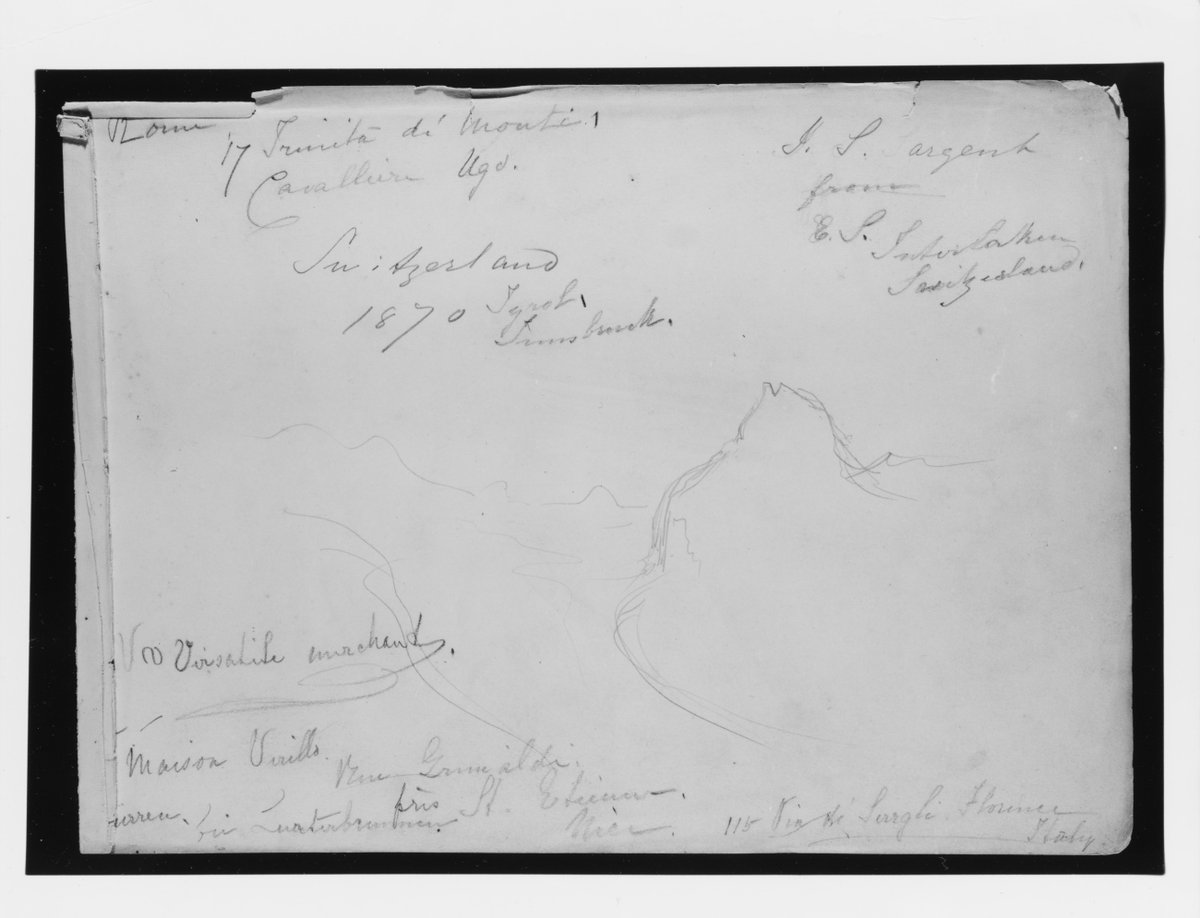 Rome
17 Trinità di Monti
Cavalliere Ugo.
J. S. Sargent
from
E. S. Interlaken
Switzerland.
Switzerland
1870 Tyrol,
Innsbruck.
Versatile merchant.
Maison Virillo.
Rue Grimaldi.
près St. Etienne.
Nice.
urren. Lauterbrunnen
115 Via dé Serragli Florence
Italy.